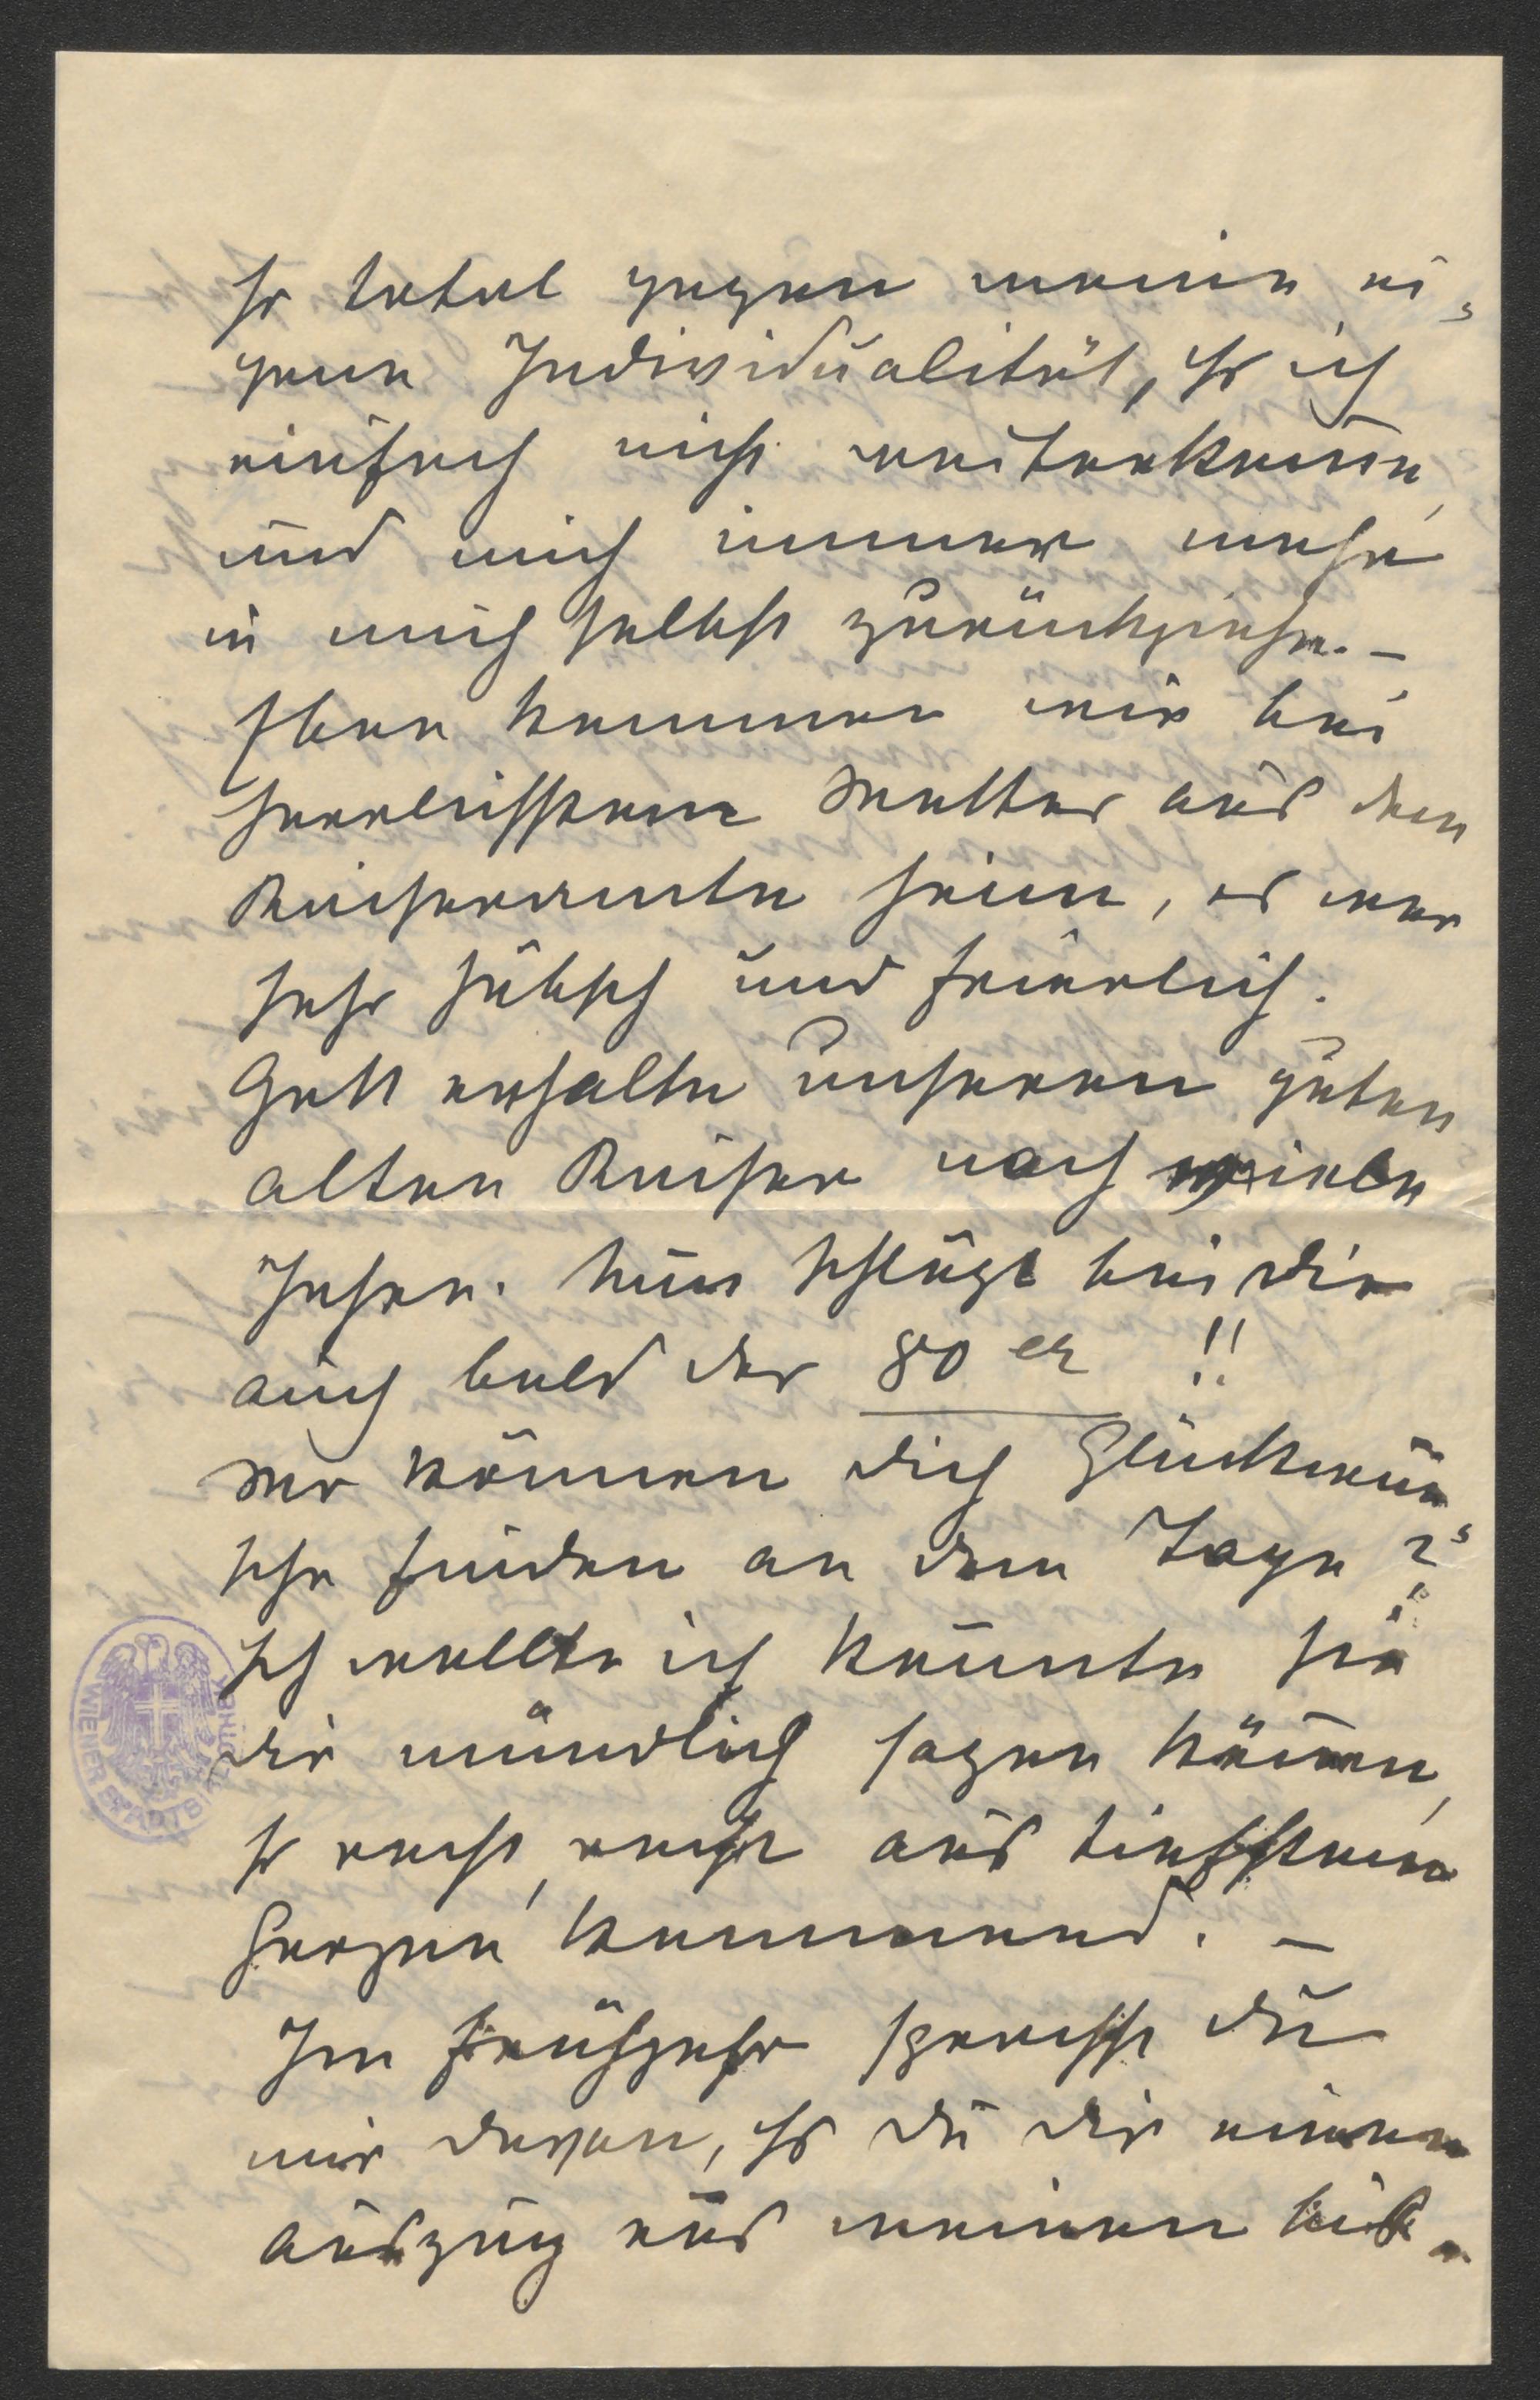 so total gegen meine ei-
gene Individualität, daß ich
einfach nicht weiterkann,
und mich immer mehr
in mich selbst zurückziehe. –
Eben kommen wir bei
herrlichstem Wetter aus dem
Kaiseramte heim, es war
sehr hübsch und feierlich.
Gott erhalte unseren guten
alten Kaiser noch viele
Jahre. Nun schlägt bei dir
auch bald der 80er !!
Wo können dich Glückwün-
sche finden an dem Tage ?
Ich wollte ich könnte sie
dir mündlich sagen können,
so recht, recht aus tiefstem
Herzen kommend. –
Im Frühjahr sprachst du
mir davon, daß du dir einen
Auszug aus meinen bis-
WIENER STADTBIBLIOTHEK